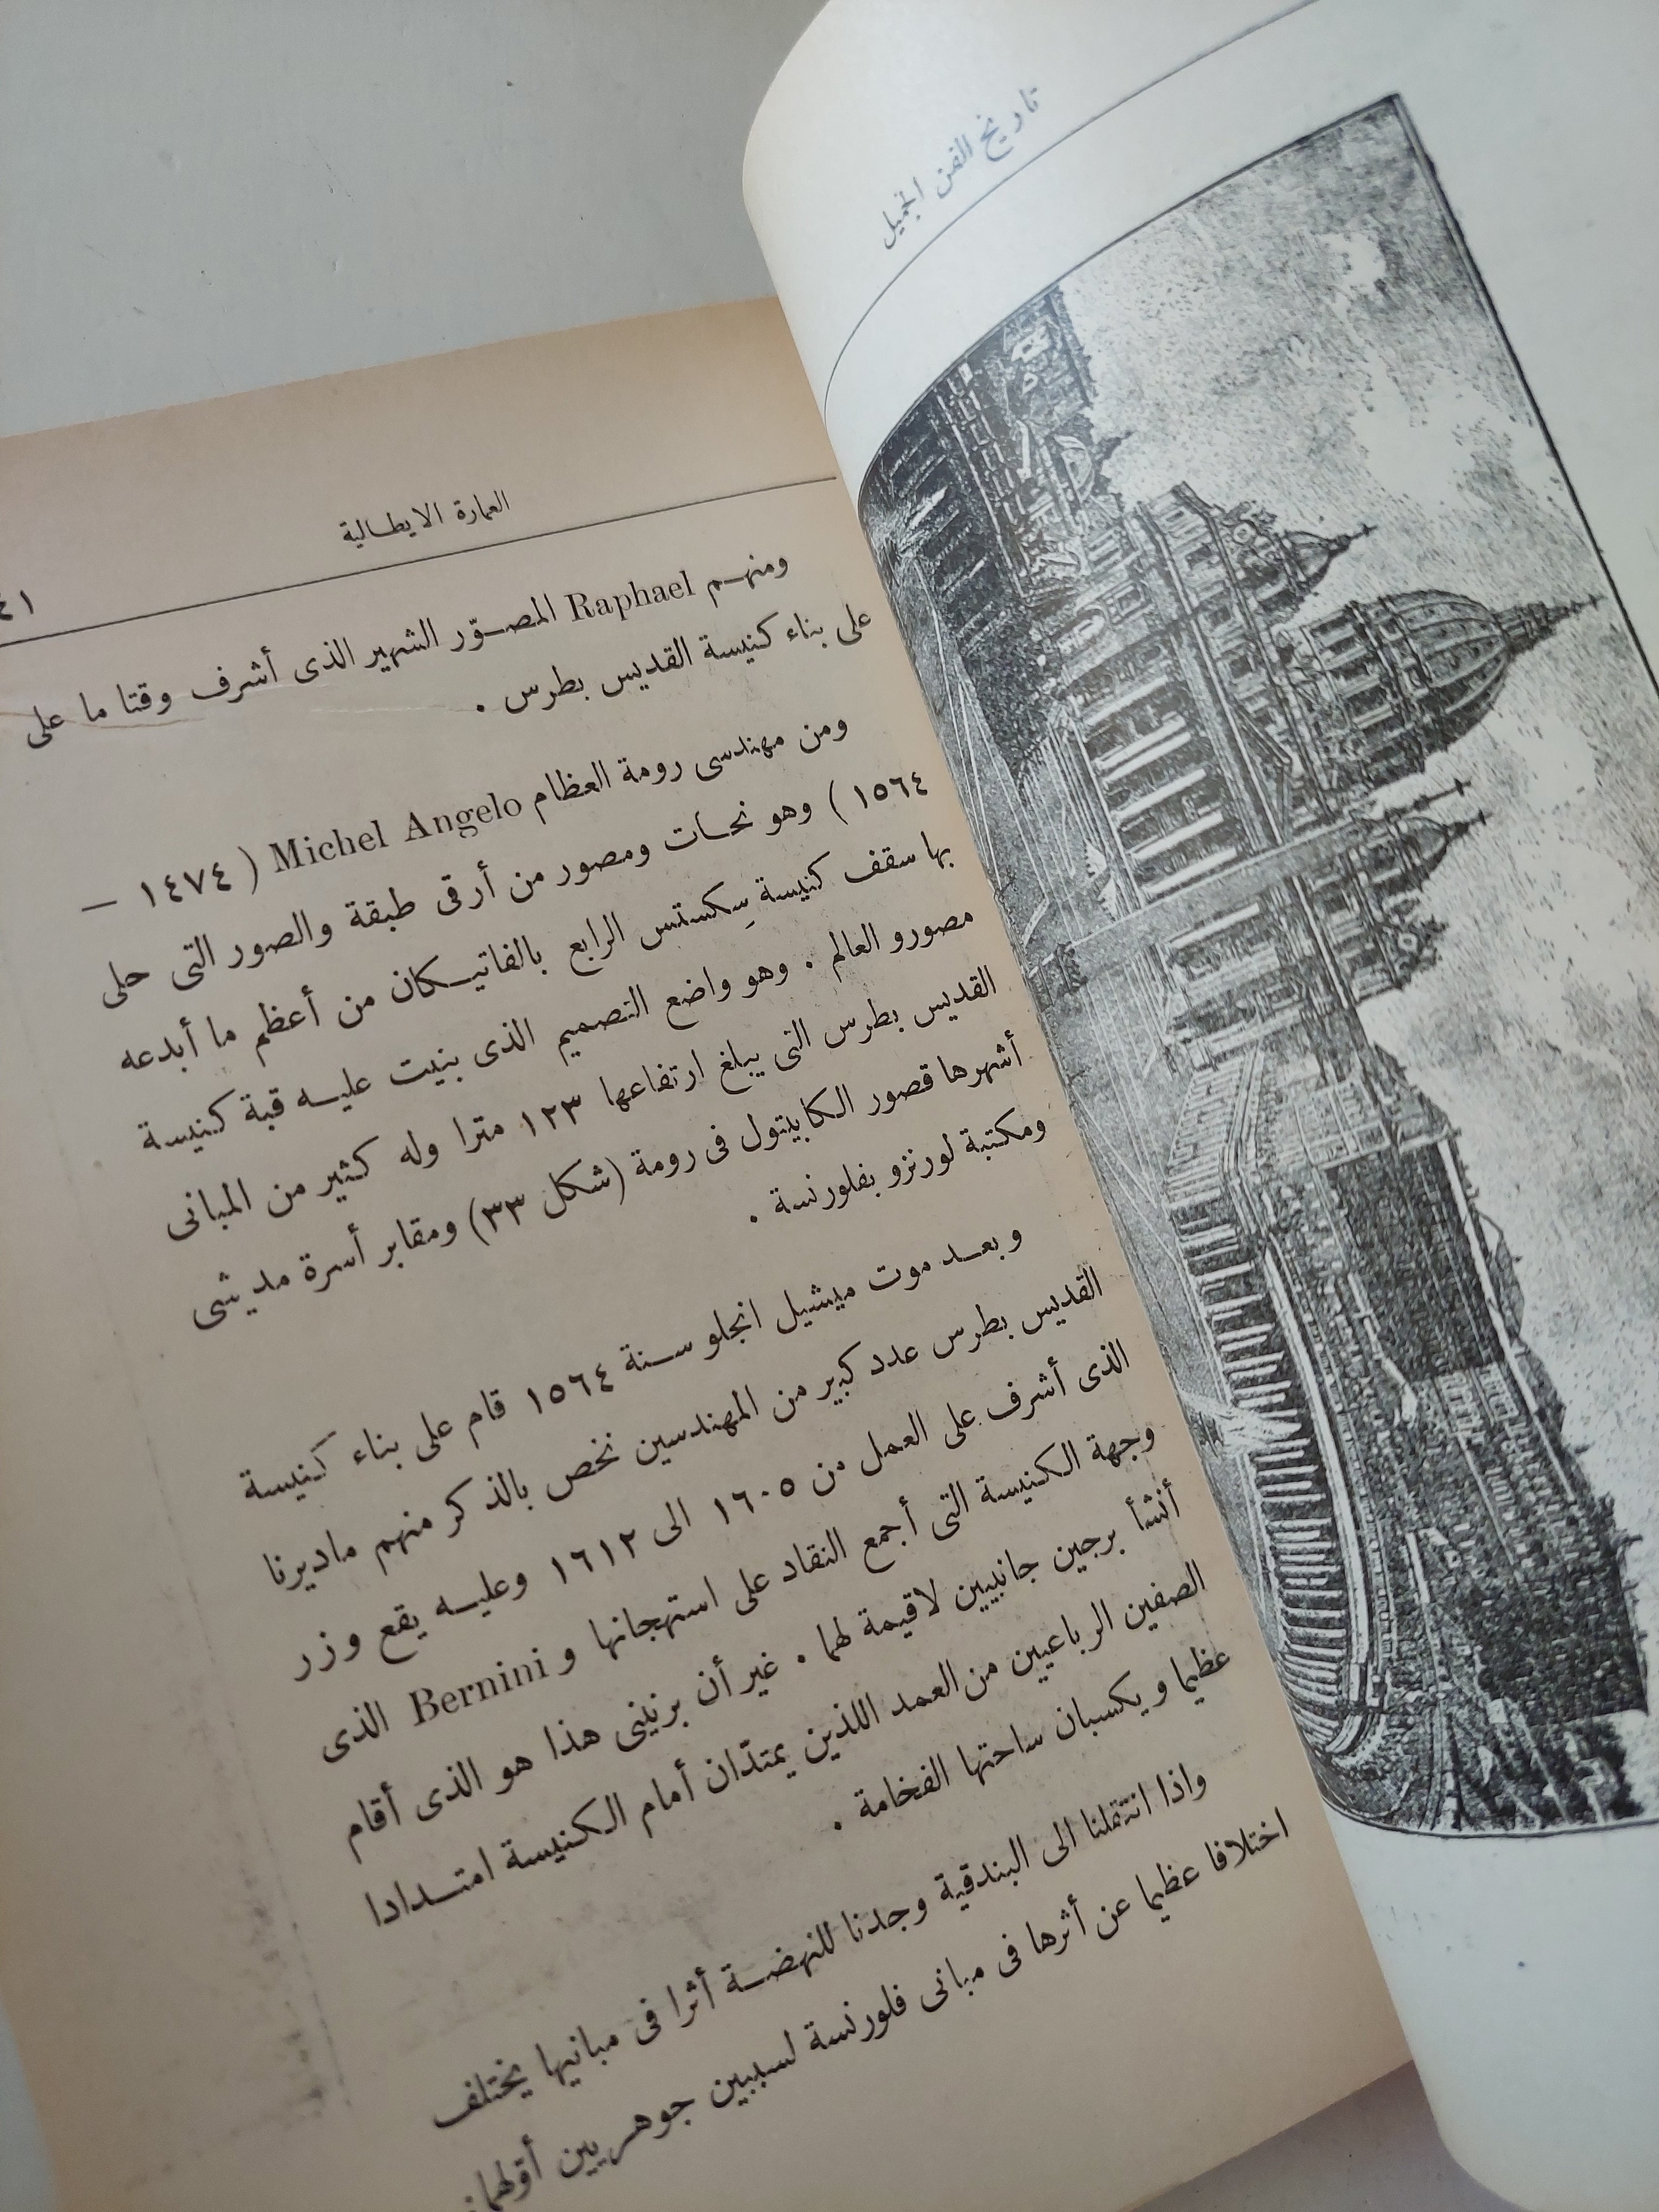 تاريخ الفن الجميل
العمارة الايطالية
٤١
ومنهم Raphael المصوّر الشهير الذى أشرف وقتا ما على
على بناء كنيسة القديس بطرس .
ومن مهندسى رومة العظام Michel Angelo ( ١٤٧٤ —
١٥٦٤ ) وهو نحات ومصور من أرقى طبقة والصور التى حلى
بها سقف كنيسة سِكستس الرابع بالفاتيكان من أعظم ما أبدعه
مصورو العالم . وهو واضع التصميم الذى بنيت عليه قبة كنيسة
القديس بطرس التى يبلغ ارتفاعها ١٢٣ مترا وله كثير من المبانى
أشهرها قصور الكابيتول فى رومة (شكل ٣٣) ومقابر أسرة مديشى
ومكتبة لورنزو بفلورنسة .
وبعد موت ميشيل انجلو سنة ١٥٦٤ قام على بناء كنيسة
القديس بطرس عدد كبير من المهندسين نخص بالذكر منهم ماديرنا
الذى أشرف على العمل من ١٦٠٥ الى ١٦١٢ وعليه يقع وزر
وجهة الكنيسة التى أجمع النقاد على استهجانها و Bernini الذى
أنشأ برجين جانبيين لاقيمة لهما . غير أن برنينى هذا هو الذى أقام
الصفين الرباعيين من العمد اللذين يمتدّان أمام الكنيسة امتدادا
عظيما ويكسبان ساحتها الفخامة .
واذا انتقلنا الى البندقية وجدنا للنهضة أثرا فى مبانيها يختلف
اختلافا عظيما عن أثرها فى مبانى فلورنسة لسببين جوهريين أوّلهما